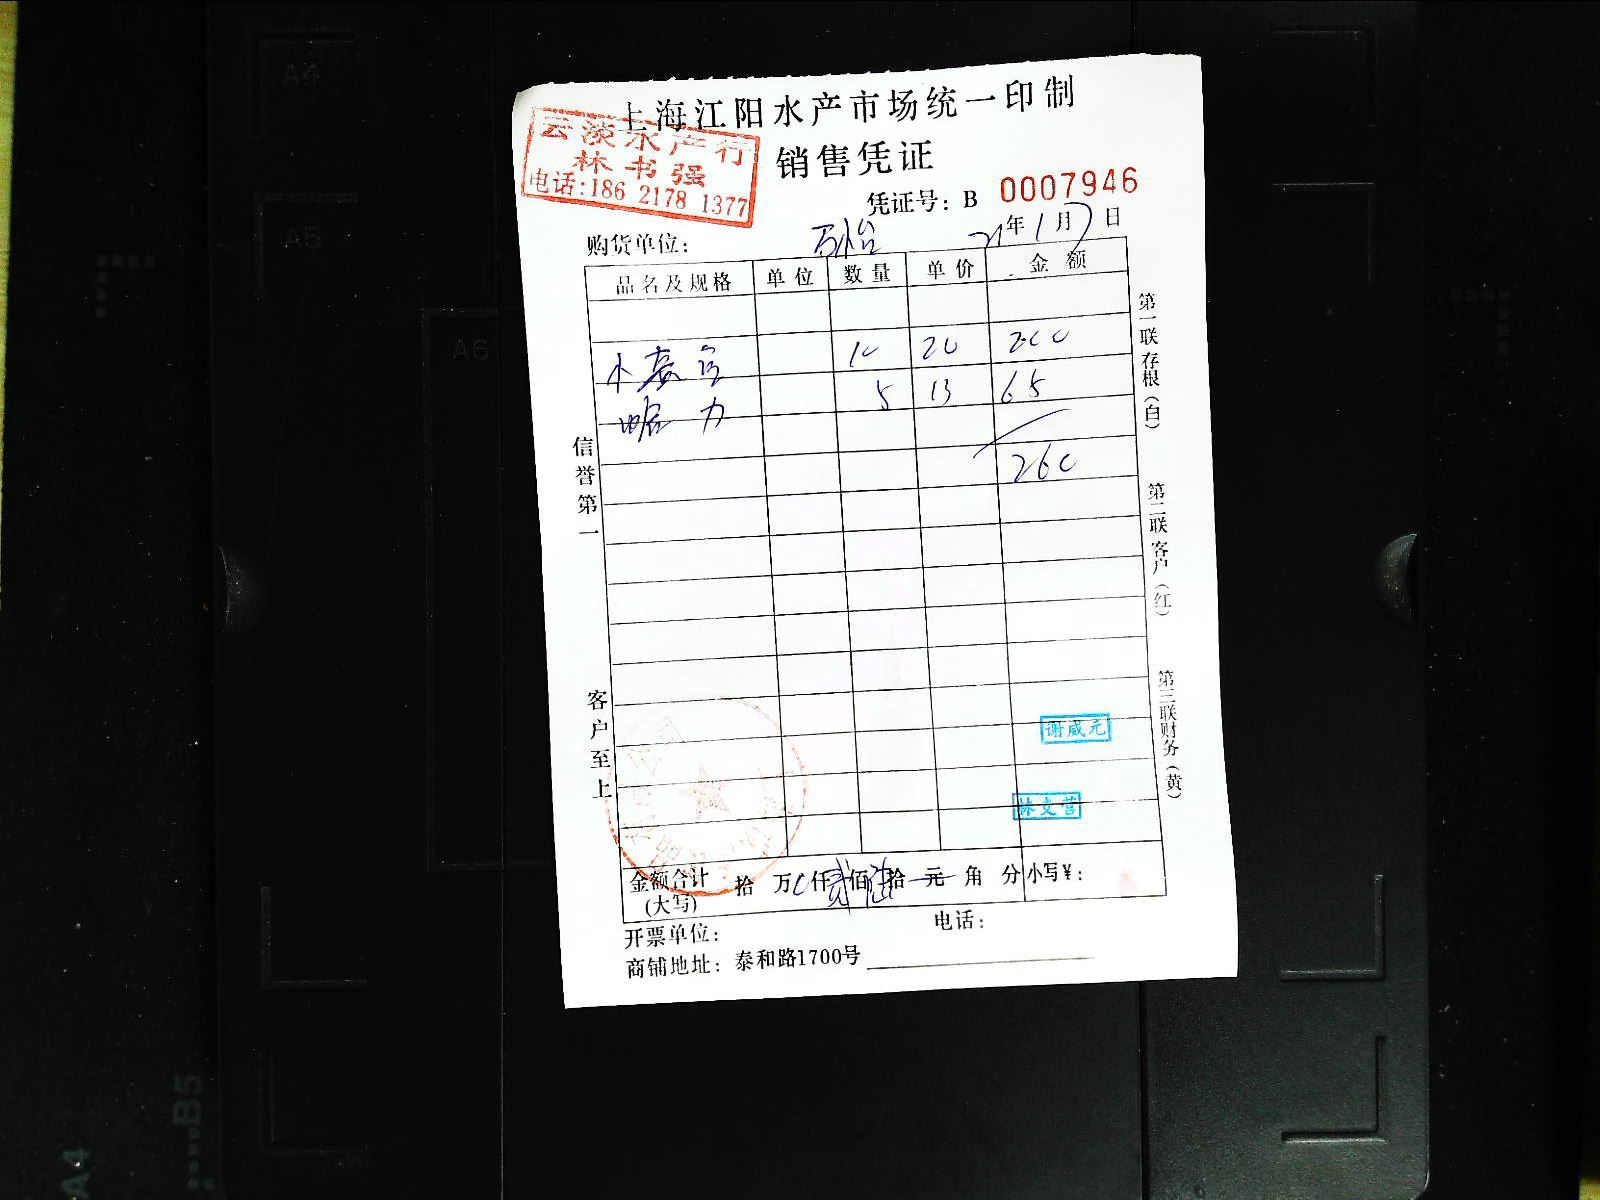 上海江阳水产市场统一印制
云淡水产行
林书强
电话:186 2178 1377
销售凭证
凭证号: B 0007946
购货单位: 万怡 21年1月7日
品名及规格 单位 数量 单价 金额
小 10 20 200
蛤力 5 13 65
260
信誉第一
客户至上
第一联存根(白)
第二联客户(红)
第三联财务(黄)
谢咸元
林文营
金额合计(大写) 拾 万 仟 贰 佰 拾 元 角 分 小写¥:
开票单位: 电话:
商铺地址: 泰和路1700号
A4
A5
A6
B5
A4